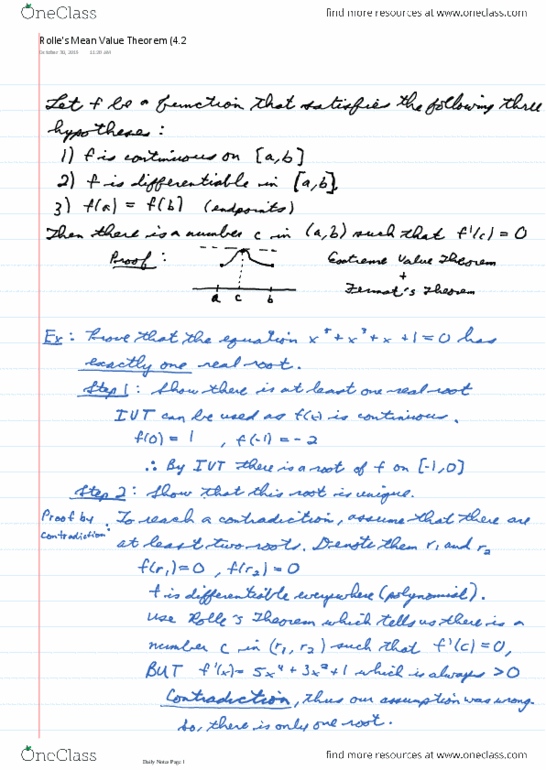 OneClass
find more resources at www.oneclass.com
Rolle's Mean Value Theorem (4.2
October 30, 2018
Let f be a function that satisfies the following three
hypotheses :
1) f is continuous on [a,b]
2) f is differentiable in [a,b]
3) f(a) = f(b) (endpoints)
Then there is a number c in (a,b) such that f'(c) = 0
Proof :
Extreme Value Theorem
+
Fermat's Theorem
a c b
Ex : Prove that the equation x⁵ + x³ + x + 1 = 0 has
exactly one real root.
Step 1 : Show there is at least one real root
IVT can be used as f(x) is continuous.
f(0) = 1 , f(-1) = -2
∴ By IVT there is a root of f on [-1,0]
Step 2 : Show that this root is unique.
Proof by contradiction : To reach a contradiction, assume that there are
at least two roots. Denote them r₁ and r₂
f(r₁)=0 , f(r₂) = 0
f is differentiable everywhere (polynomial).
Use Rolle's Theorem which tells us there is a
number c in (r₁, r₂) such that f'(c) = 0,
BUT f'(x) = 5x⁴ + 3x² + 1 which is always > 0
Contradiction, thus our assumption was wrong.
So, there is only one root.
Daily Notes Page 1
OneClass
find more resources at www.oneclass.com